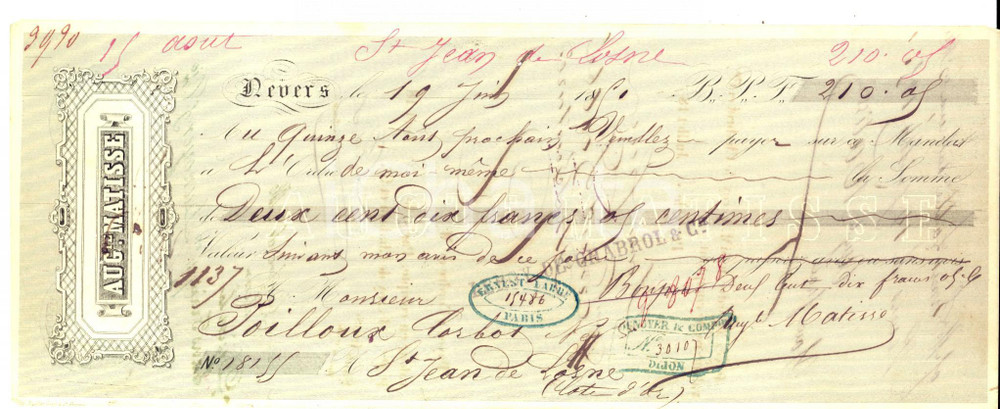 3990 15 aout St Jean de Losne 210.05
Nevers le 19 Juin 1850 B.P.F. 210.05
AUG. MATISSE
Au quinze Aout prochain Veuillez payer sur ce Mandat
à L'Ordre de moi même la Somme
de Deux cent dix francs 05 centimes
MATISSE
Valeur Suivant mon avis de ce jour
CHABROL & Cie
1137
Bon pour Deux Cent dix francs 05 c
A Monsieur
ERNEST LARGE
15486
PARIS
Poilloux
Augte Matisse
& COMP
No. 30107
DIJON
No. 18155
St Jean de Losne
(Cote d'Or)